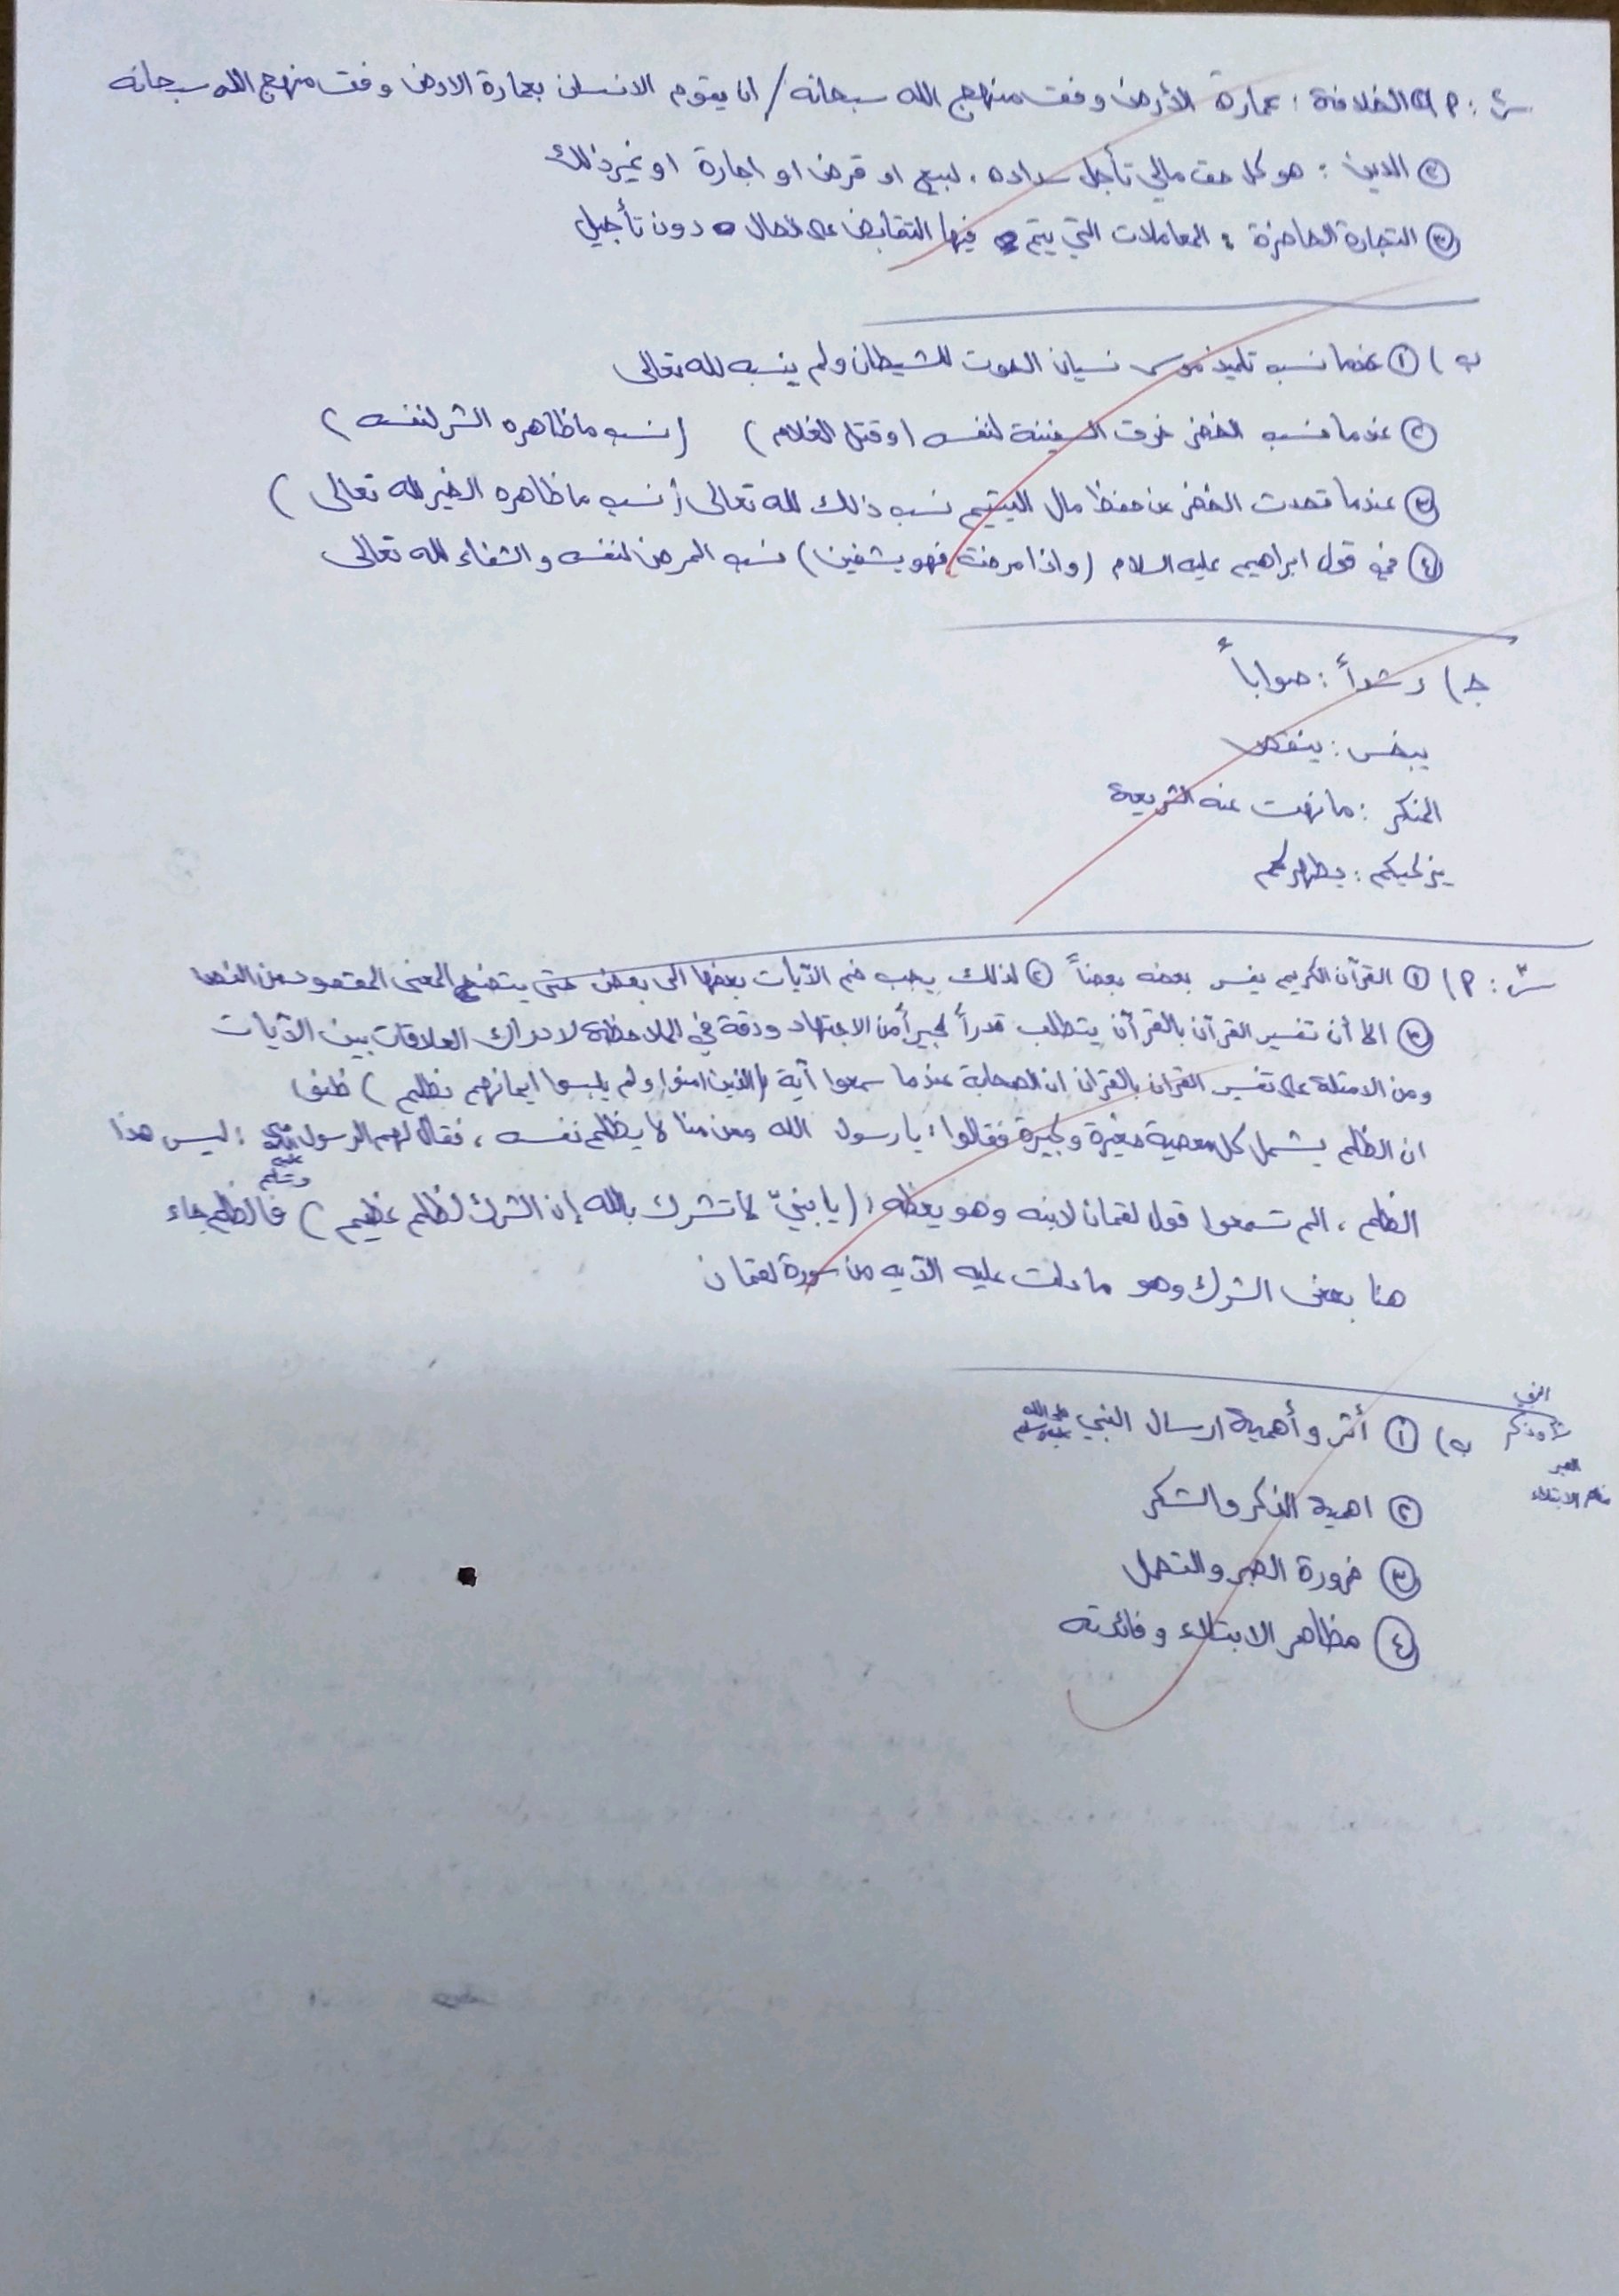 س٢: أ) ① الخلافة: عمارة الأرض وفق منهج الله سبحانه / ان يقوم الانسان بعمارة الارض وفق منهج الله سبحانه
② الدين: هو كل حق مالي تأجل سداده، لبيع او قرض او اجارة او غير ذلك
③ التجارة الحاضرة: المعاملات التي يتم فيها التقابض على الحال دون تأجيل
ب) ① عندما نسب تلميذ موسى نسيان الحوت للشيطان ولم ينسبه لله تعالى
② عندما نسب الخضر خرق السفينة لنفسه (وقتل الغلام) (نسب ما ظاهره الشر لنفسه)
③ عندما تحدث الخضر عن حفظ مال اليتيم نسب ذلك لله تعالى (نسب ما ظاهره الخير لله تعالى)
④ في قول ابراهيم عليه السلام (واذا مرضت فهو يشفين) نسب المرض لنفسه والشفاء لله تعالى
ج) رشداً: صواباً
يبخس: ينقص
المنكر: ما نهت عنه الشريعة
يزكيكم: يطهركم
س٣: أ) ① القرآن الكريم يفسر بعضه بعضاً ② لذلك يجب ضم الآيات بعضها الى بعض حتى يتضح المعنى المقصود من النص
③ الا أن تفسير القرآن بالقرآن يتطلب قدراً كبيراً من الاجتهاد ودقة في الملاحظة لادراك العلاقات بين الآيات
ومن الامثلة على تفسير القران بالقران ان الصحابة عندما سمعوا آية (الذين امنوا ولم يلبسوا ايمانهم بظلم) ظنوا
ان الظلم يشمل كل معصية صغيرة وكبيرة فقالوا: يا رسول الله ومن منا لا يظلم نفسه، فقال لهم الرسول صلى الله عليه وسلم: ليس هذا
الظلم، الم تسمعوا قول لقمان لابنه وهو يعظه: (يا بنيّ لا تشرك بالله إن الشرك لظلم عظيم) فالظلم جاء
هنا بمعنى الشرك وهو ما دلت عليه الآيه من سورة لقمان
ب) ① أثر وأهمية ارسال النبي صلى الله عليه وسلم
② اهمية الذكر والشكر
③ ضرورة الصبر والتحمل
④ مظاهر الابتلاء وفائدته
الصبر